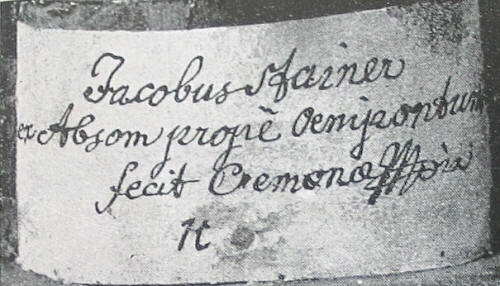 Jacobus Stainer
ex Absom propè Oenipontum
fecit Cremonæ